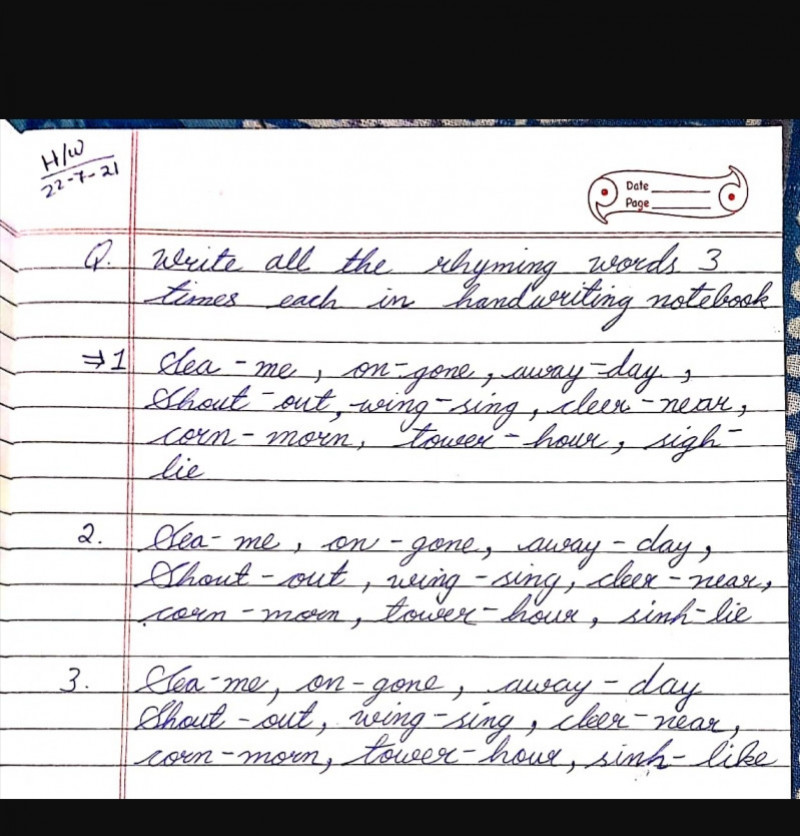 H/W
22-7-21
Date
Page
Q. Write all the rhyming words 3
times each in handwriting notebook
⇒1 Sea - me, on-gone, away-day,
Shout-out, wing-sing, cleer-near,
corn-morn, tower-hour, sigh-
lie
2. Sea-me, on-gone, away-day,
Shout-out, wing-sing, cleer-near,
corn-morn, tower-hour, sinh-lie
3. Sea-me, on-gone, away-day
Shout-out, wing-sing, cleer-near,
corn-morn, tower-hour, sinh-like